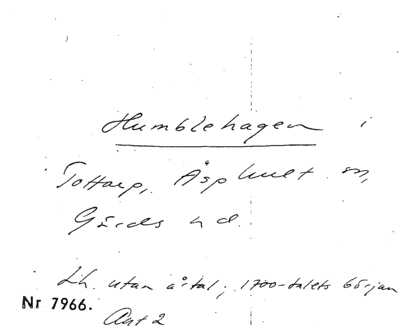 Humblehagen i
Tottarp, Äsphult sn,
Gärds hd.
Lh. utan årtal; 1700-talets början
Nr 7966.
Avt 2